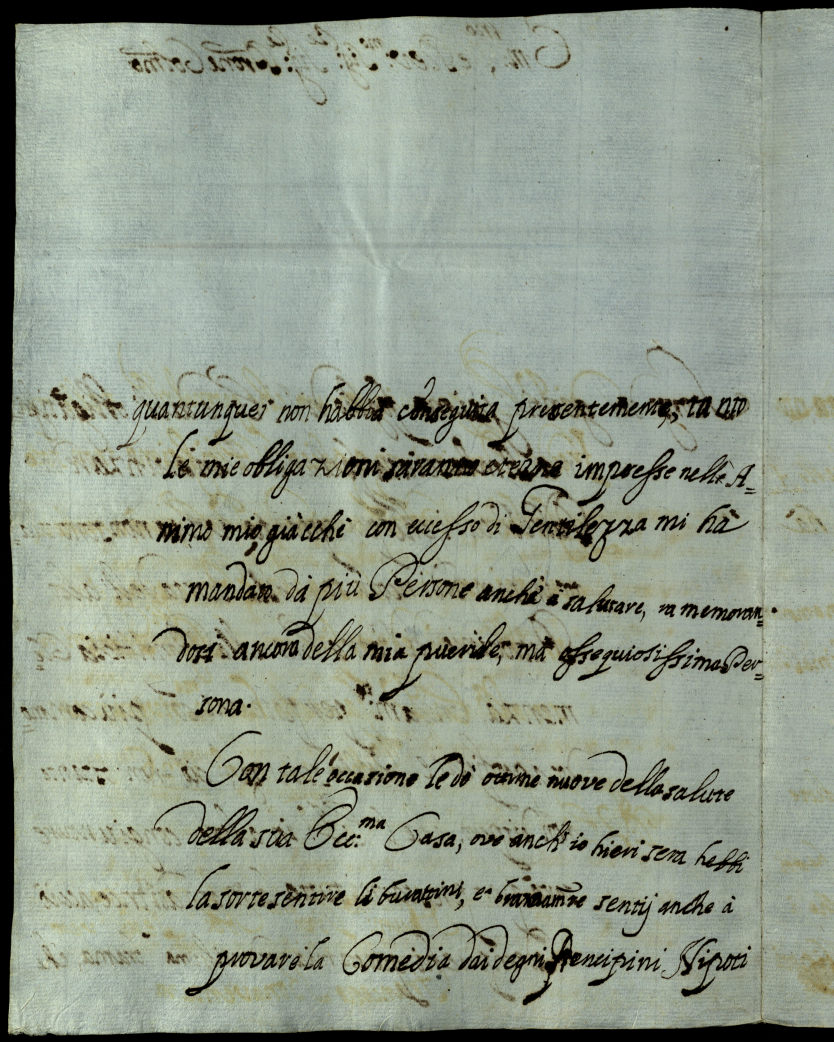 quantunque non habbia conseguita presentemente, tanto
le mie obligazioni saranno eterne impresse nelle A=
nimo mio giàcchè con eccesso di Gentilezza mi hà
mandato da più Persone anche à salutare, ramemoran=
dosi ancora della mia puerile, mà ossequiosissima Per=
sona.
Con tale occasione le dò ottime nuove della salute
della sua Ecc:ma Casa, ove anch'io hieri sera hebbi
la sorte sentire li burattini, e sentij anche à
provare la Comedia dai degni Prencipini Nipoti